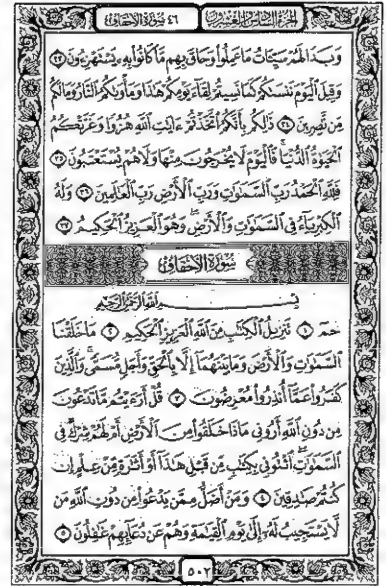 الجزء السادس والعشرون
٤٦ سورة الأحقاف
وَبَدَا لَهُمْ سَيِّئَاتُ مَا عَمِلُوا وَحَاقَ بِهِم مَّا كَانُوا بِهِ يَسْتَهْزِءُونَ ٣٣
وَقِيلَ ٱلْيَوْمَ نَنسَىٰكُمْ كَمَا نَسِيتُمْ لِقَآءَ يَوْمِكُمْ هَٰذَا وَمَأْوَىٰكُمُ ٱلنَّارُ وَمَا لَكُم
مِّن نَّٰصِرِينَ ٣٤ ذَٰلِكُم بِأَنَّكُمُ ٱتَّخَذْتُمْ ءَايَٰتِ ٱللَّهِ هُزُوًا وَغَرَّتْكُمُ
ٱلْحَيَوٰةُ ٱلدُّنْيَا ۚ فَٱلْيَوْمَ لَا يُخْرَجُونَ مِنْهَا وَلَا هُمْ يُسْتَعْتَبُونَ ٣٥
فَلِلَّهِ ٱلْحَمْدُ رَبِّ ٱلسَّمَٰوَٰتِ وَرَبِّ ٱلْأَرْضِ رَبِّ ٱلْعَٰلَمِينَ ٣٦ وَلَهُ
ٱلْكِبْرِيَآءُ فِى ٱلسَّمَٰوَٰتِ وَٱلْأَرْضِ ۖ وَهُوَ ٱلْعَزِيزُ ٱلْحَكِيمُ ٣٧
سُورَةُ الأَحْقَافِ
بِسْمِ ٱللَّهِ ٱلرَّحْمَٰنِ ٱلرَّحِيمِ
حمٓ ١ تَنزِيلُ ٱلْكِتَٰبِ مِنَ ٱللَّهِ ٱلْعَزِيزِ ٱلْحَكِيمِ ٢ مَا خَلَقْنَا
ٱلسَّمَٰوَٰتِ وَٱلْأَرْضَ وَمَا بَيْنَهُمَآ إِلَّا بِٱلْحَقِّ وَأَجَلٍ مُّسَمًّى ۚ وَٱلَّذِينَ
كَفَرُوا عَمَّآ أُنذِرُوا مُعْرِضُونَ ٣ قُلْ أَرَءَيْتُم مَّا تَدْعُونَ
مِن دُونِ ٱللَّهِ أَرُونِى مَاذَا خَلَقُوا مِنَ ٱلْأَرْضِ أَمْ لَهُمْ شِرْكٌ فِى
ٱلسَّمَٰوَٰتِ ۖ ٱئْتُونِى بِكِتَٰبٍ مِّن قَبْلِ هَٰذَآ أَوْ أَثَٰرَةٍ مِّنْ عِلْمٍ إِن
كُنتُمْ صَٰدِقِينَ ٤ وَمَنْ أَضَلُّ مِمَّن يَدْعُوا مِن دُونِ ٱللَّهِ مَن
لَّا يَسْتَجِيبُ لَهُۥٓ إِلَىٰ يَوْمِ ٱلْقِيَٰمَةِ وَهُمْ عَن دُعَآئِهِمْ غَٰفِلُونَ ٥
٥٠٢